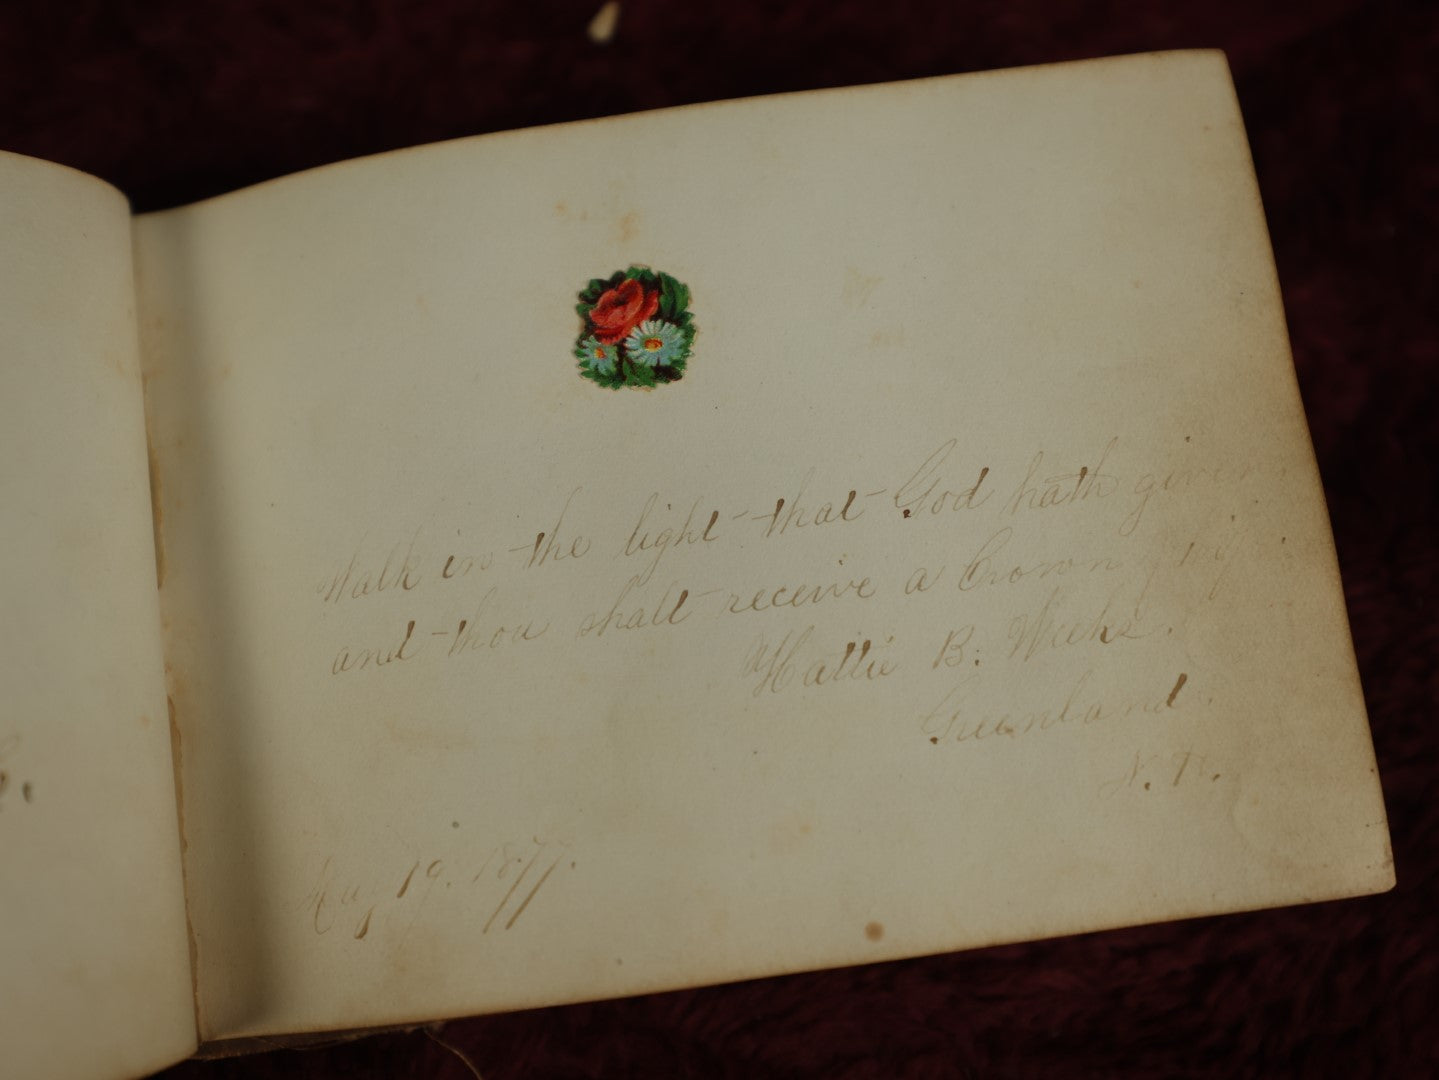 Walk in the light that God hath given
and thou shalt receive a Crown of
Hattie B. Weeks.
Greenland.
N. H.
May 19. 1877.